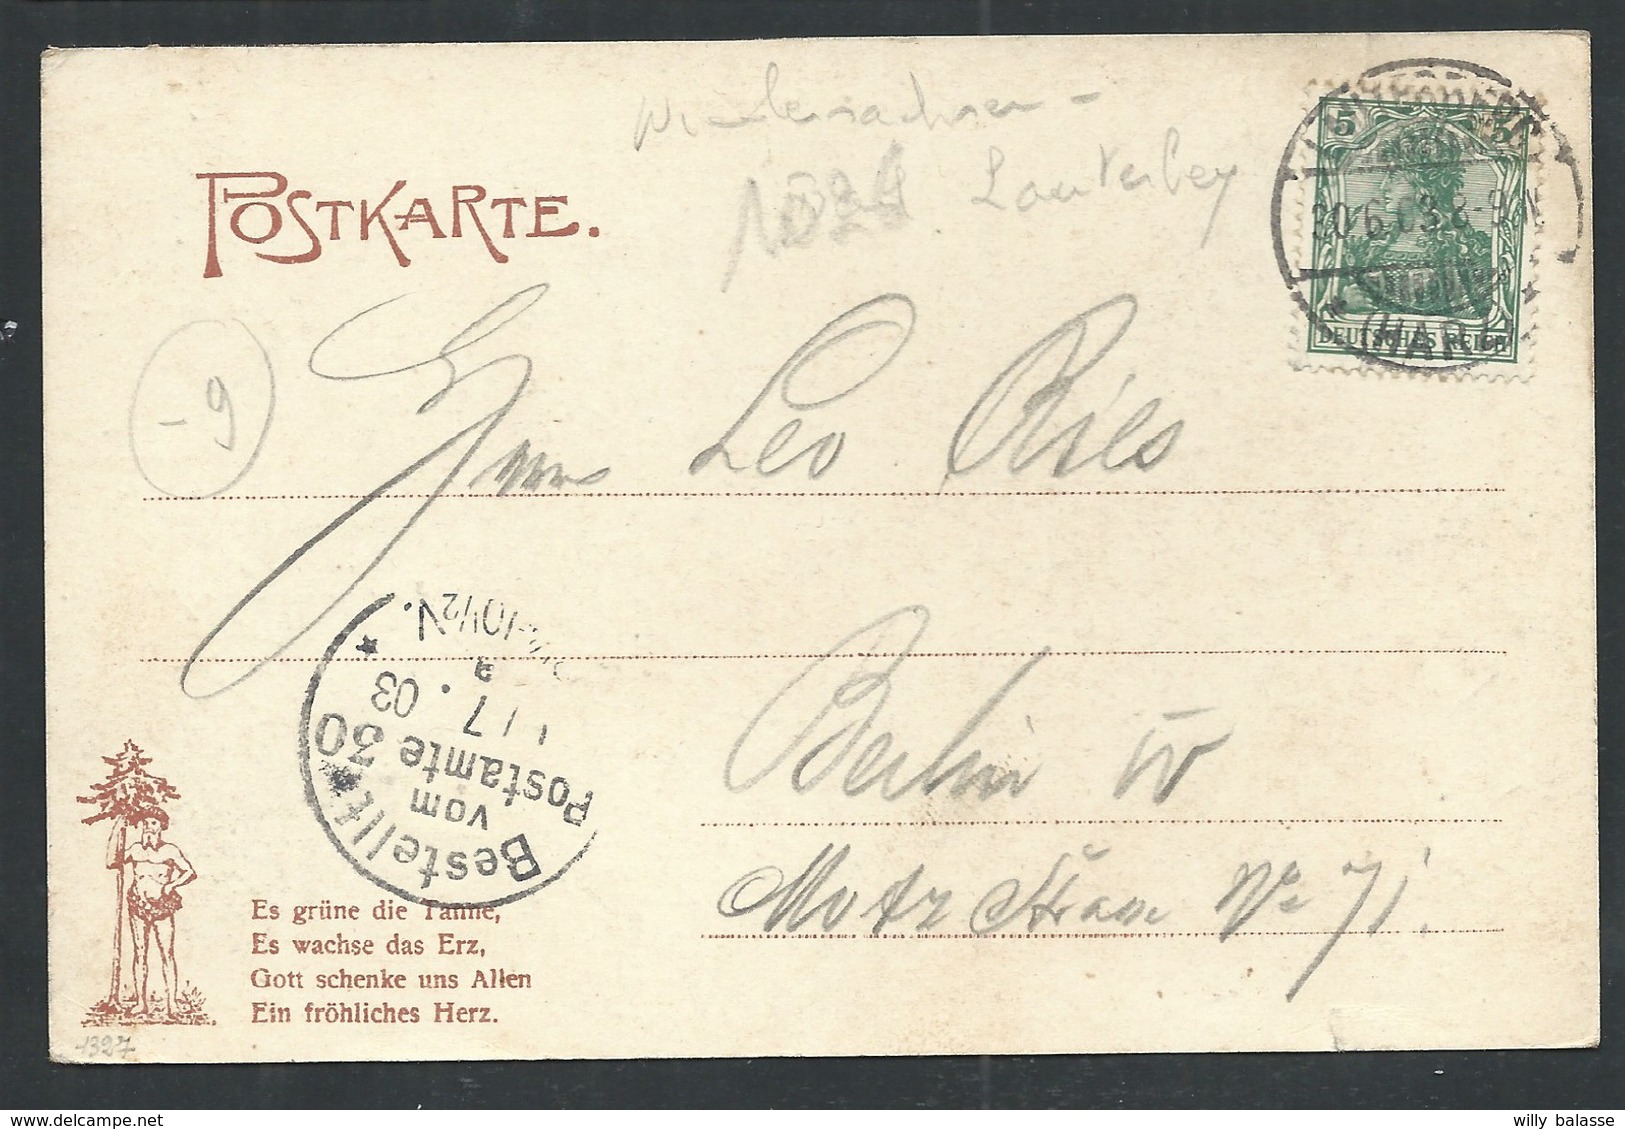 Niedersachsen -
Lauterberg
POSTKARTE.
5
5
30.6.03.8-9N
(HARZ)
DEUTSCHES REICH
- 9
Herrn Leo Ries
Berlin W
Motz Strasse No 71.
Bestellt
vom
Postamte 30
1/7.03
10½V.
Es grüne die Tanne,
Es wachse das Erz,
Gott schenke uns Allen
Ein fröhliches Herz.
1327
willy balasse